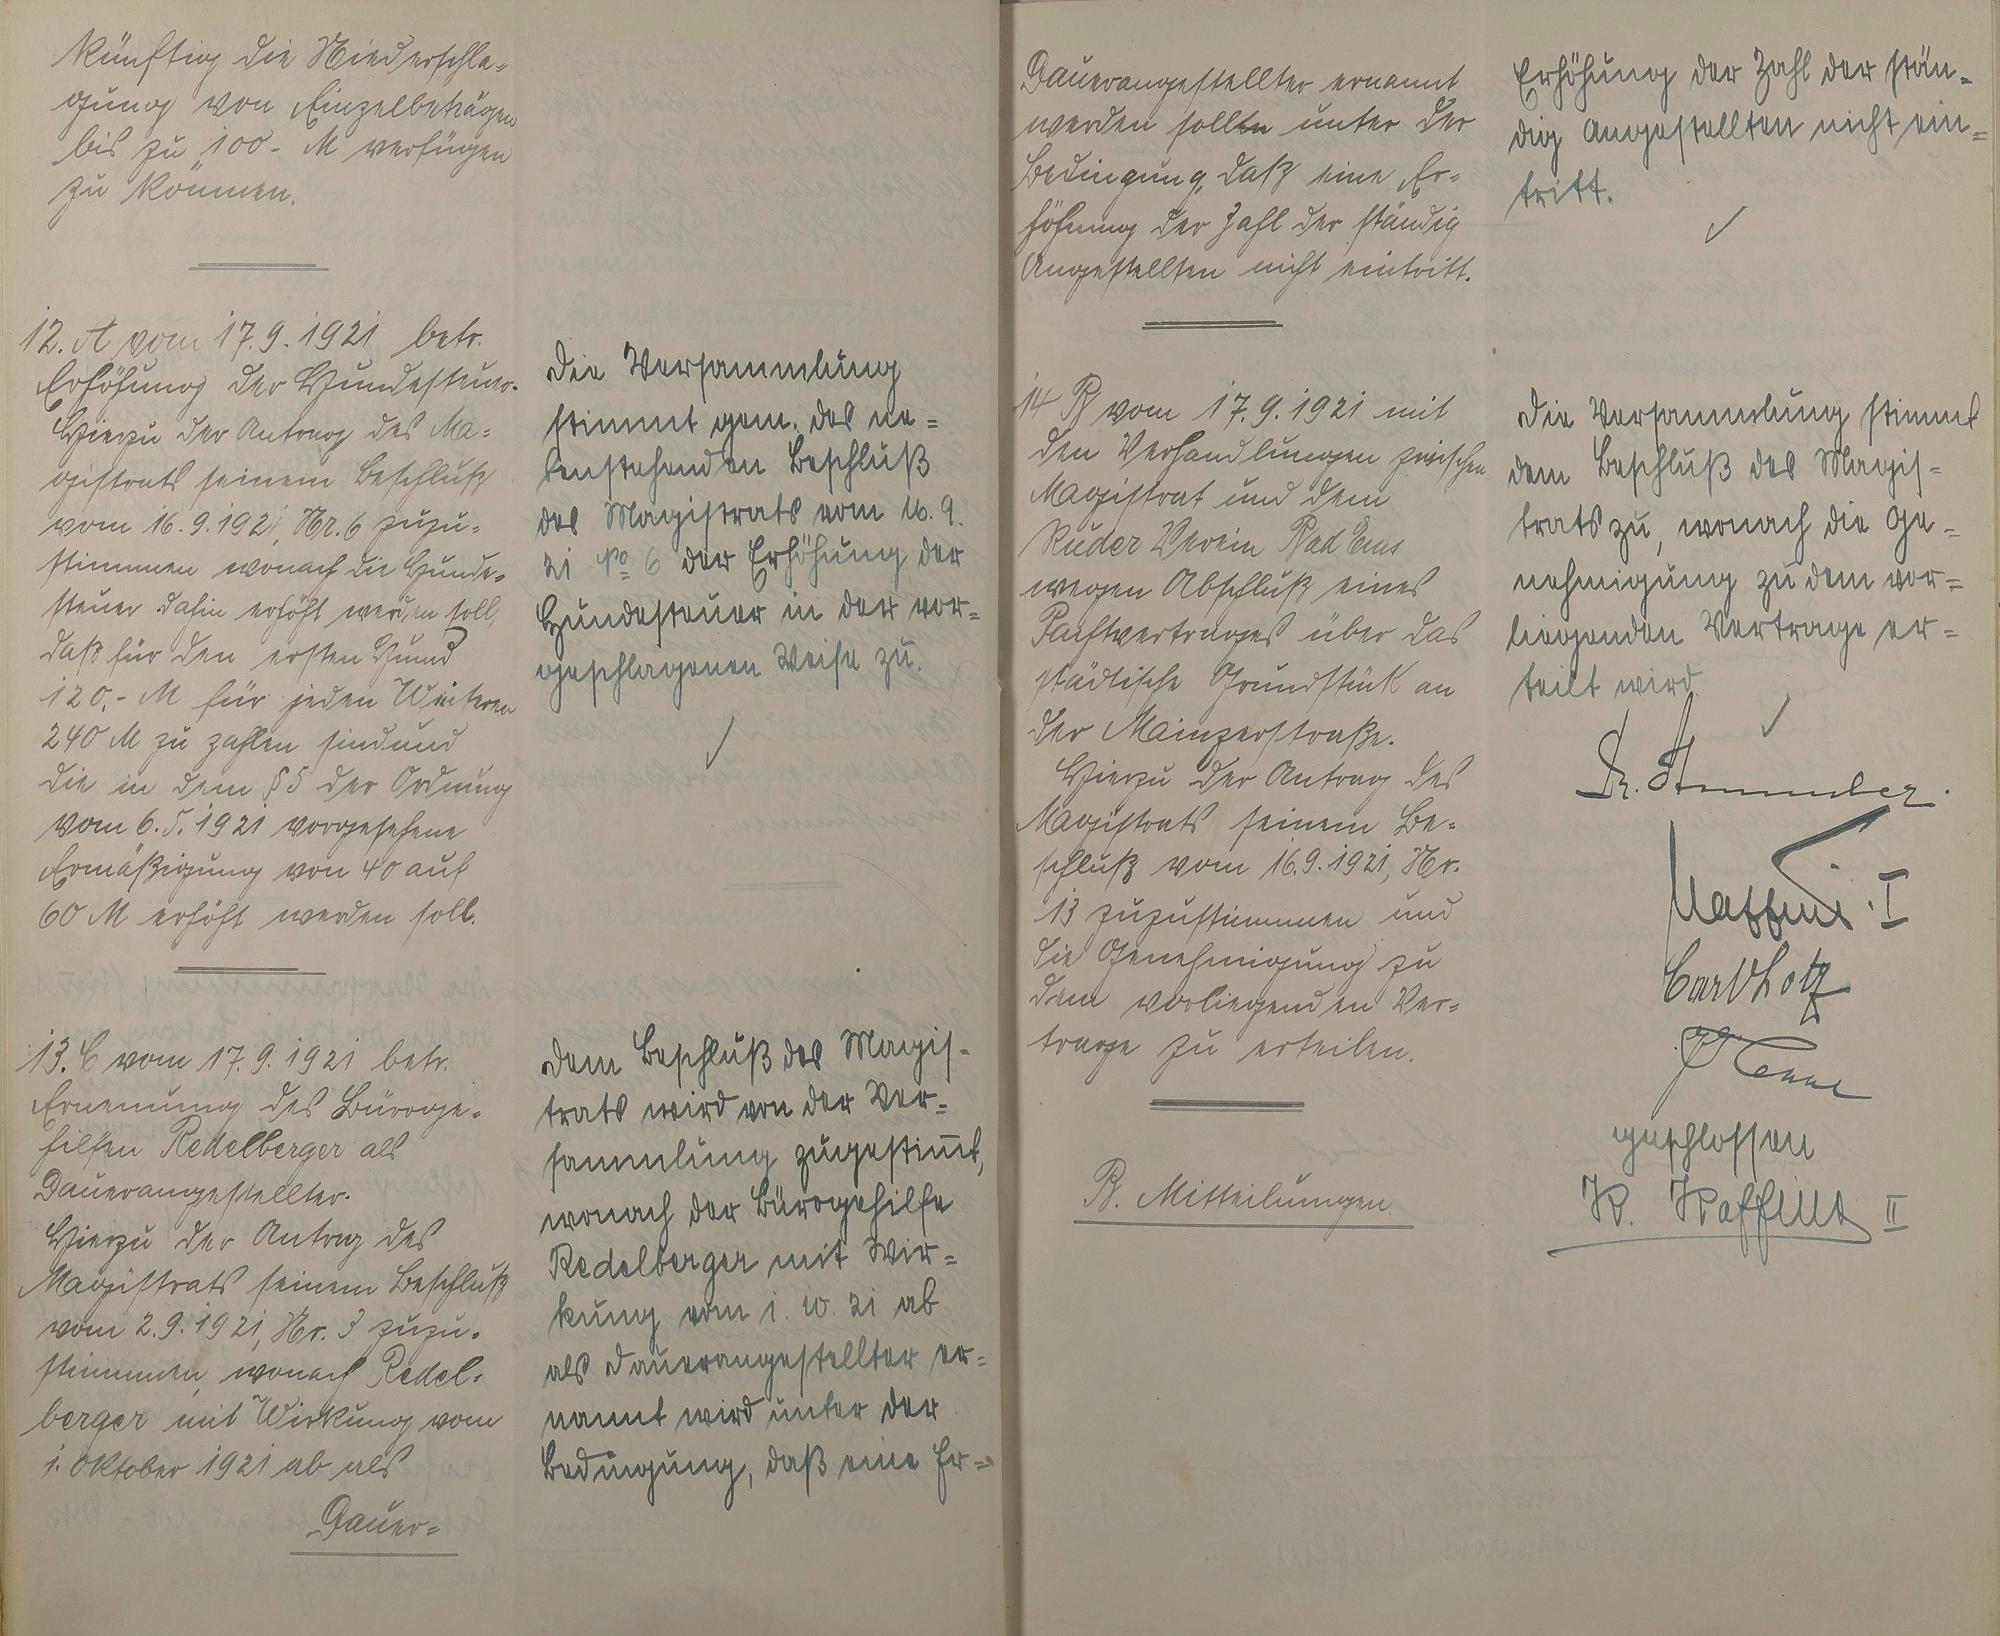 künftig die Niederschla-
gung von Einzelbeträgen
bis zu 100.- M verfügen
zu können.
12. A vom 17.9.1921 betr.
Erhöhung der Hundesteuer.
Hierzu der Antrag des Ma-
gistrats seinem Beschluß
vom 16.9.1921, Nr. 6 zuzu-
stimmen wonach die Hunde-
steuer dahin erhöht werden soll,
daß für den ersten Hund
120,- M für jeden Weiteren
240 M zu zahlen sind und
die in dem § 5 der Ordnung
vom 6.5.1921 vorgesehene
Ermäßigung von 40 auf
60 M erhöht werden soll.
13. C vom 17.9.1921 betr.
Ernennung des Büroge-
hilfen Redelberger als
Dauerangestellter.
Hierzu der Antrag des
Magistrats seinem Beschluß
vom 2.9.1921, Nr. 3 zuzu-
stimmen, wonach Redel-
berger mit Wirkung vom
1. Oktober 1921 ab als
Dauer-
Die Versammlung
stimmt gem. des ne-
benstehenden Beschluß
des Magistrats vom 16.9.
21 No 6 der Erhöhung der
Hundesteuer in der vor-
geschlagenen Weise zu.
Dem Beschluß des Magis-
trats wird von der Ver-
sammlung zugestim̅t,
wonach der Bürogehilfe
Redelberger mit Wir-
kung vom 1. 10. 21 ab
als Dauerangestellter er-
nannt wird unter der
Bedingung, daß eine Er-
Dauerangestellter ernannt
werden sollen unter der
Bedingung, daß eine Er-
höhung der Zahl der ständig
Angestellten nicht eintritt.
14 B vom 17.9.1921 mit
den Verhandlungen zwischen
Magistrat und dem
Ruder Verein Bad Ems
wegen Abschluß eines
Pachtvertrages über das
städtische Grundstück an
der Mainzerstraße.
Hierzu der Antrag des
Magistrats seinem Be-
schluß vom 16.9.1921, Nr.
13 zuzustimmen und
die Genehmigung zu
dem vorliegenden Ver-
trage zu erteilen.
B. Mitteilungen.
Erhöhung der Zahl der stän-
dig Angestellten nicht ein-
tritt.
Die Versammlung stimmt
dem Beschluß des Magis-
trats zu, wonach die Ge-
nehmigung zu dem vor-
liegenden Vertrage er-
teilt wird.
Dr. Stemmler.
I
Carl Lotz
geschlossen
K. Kaffine II